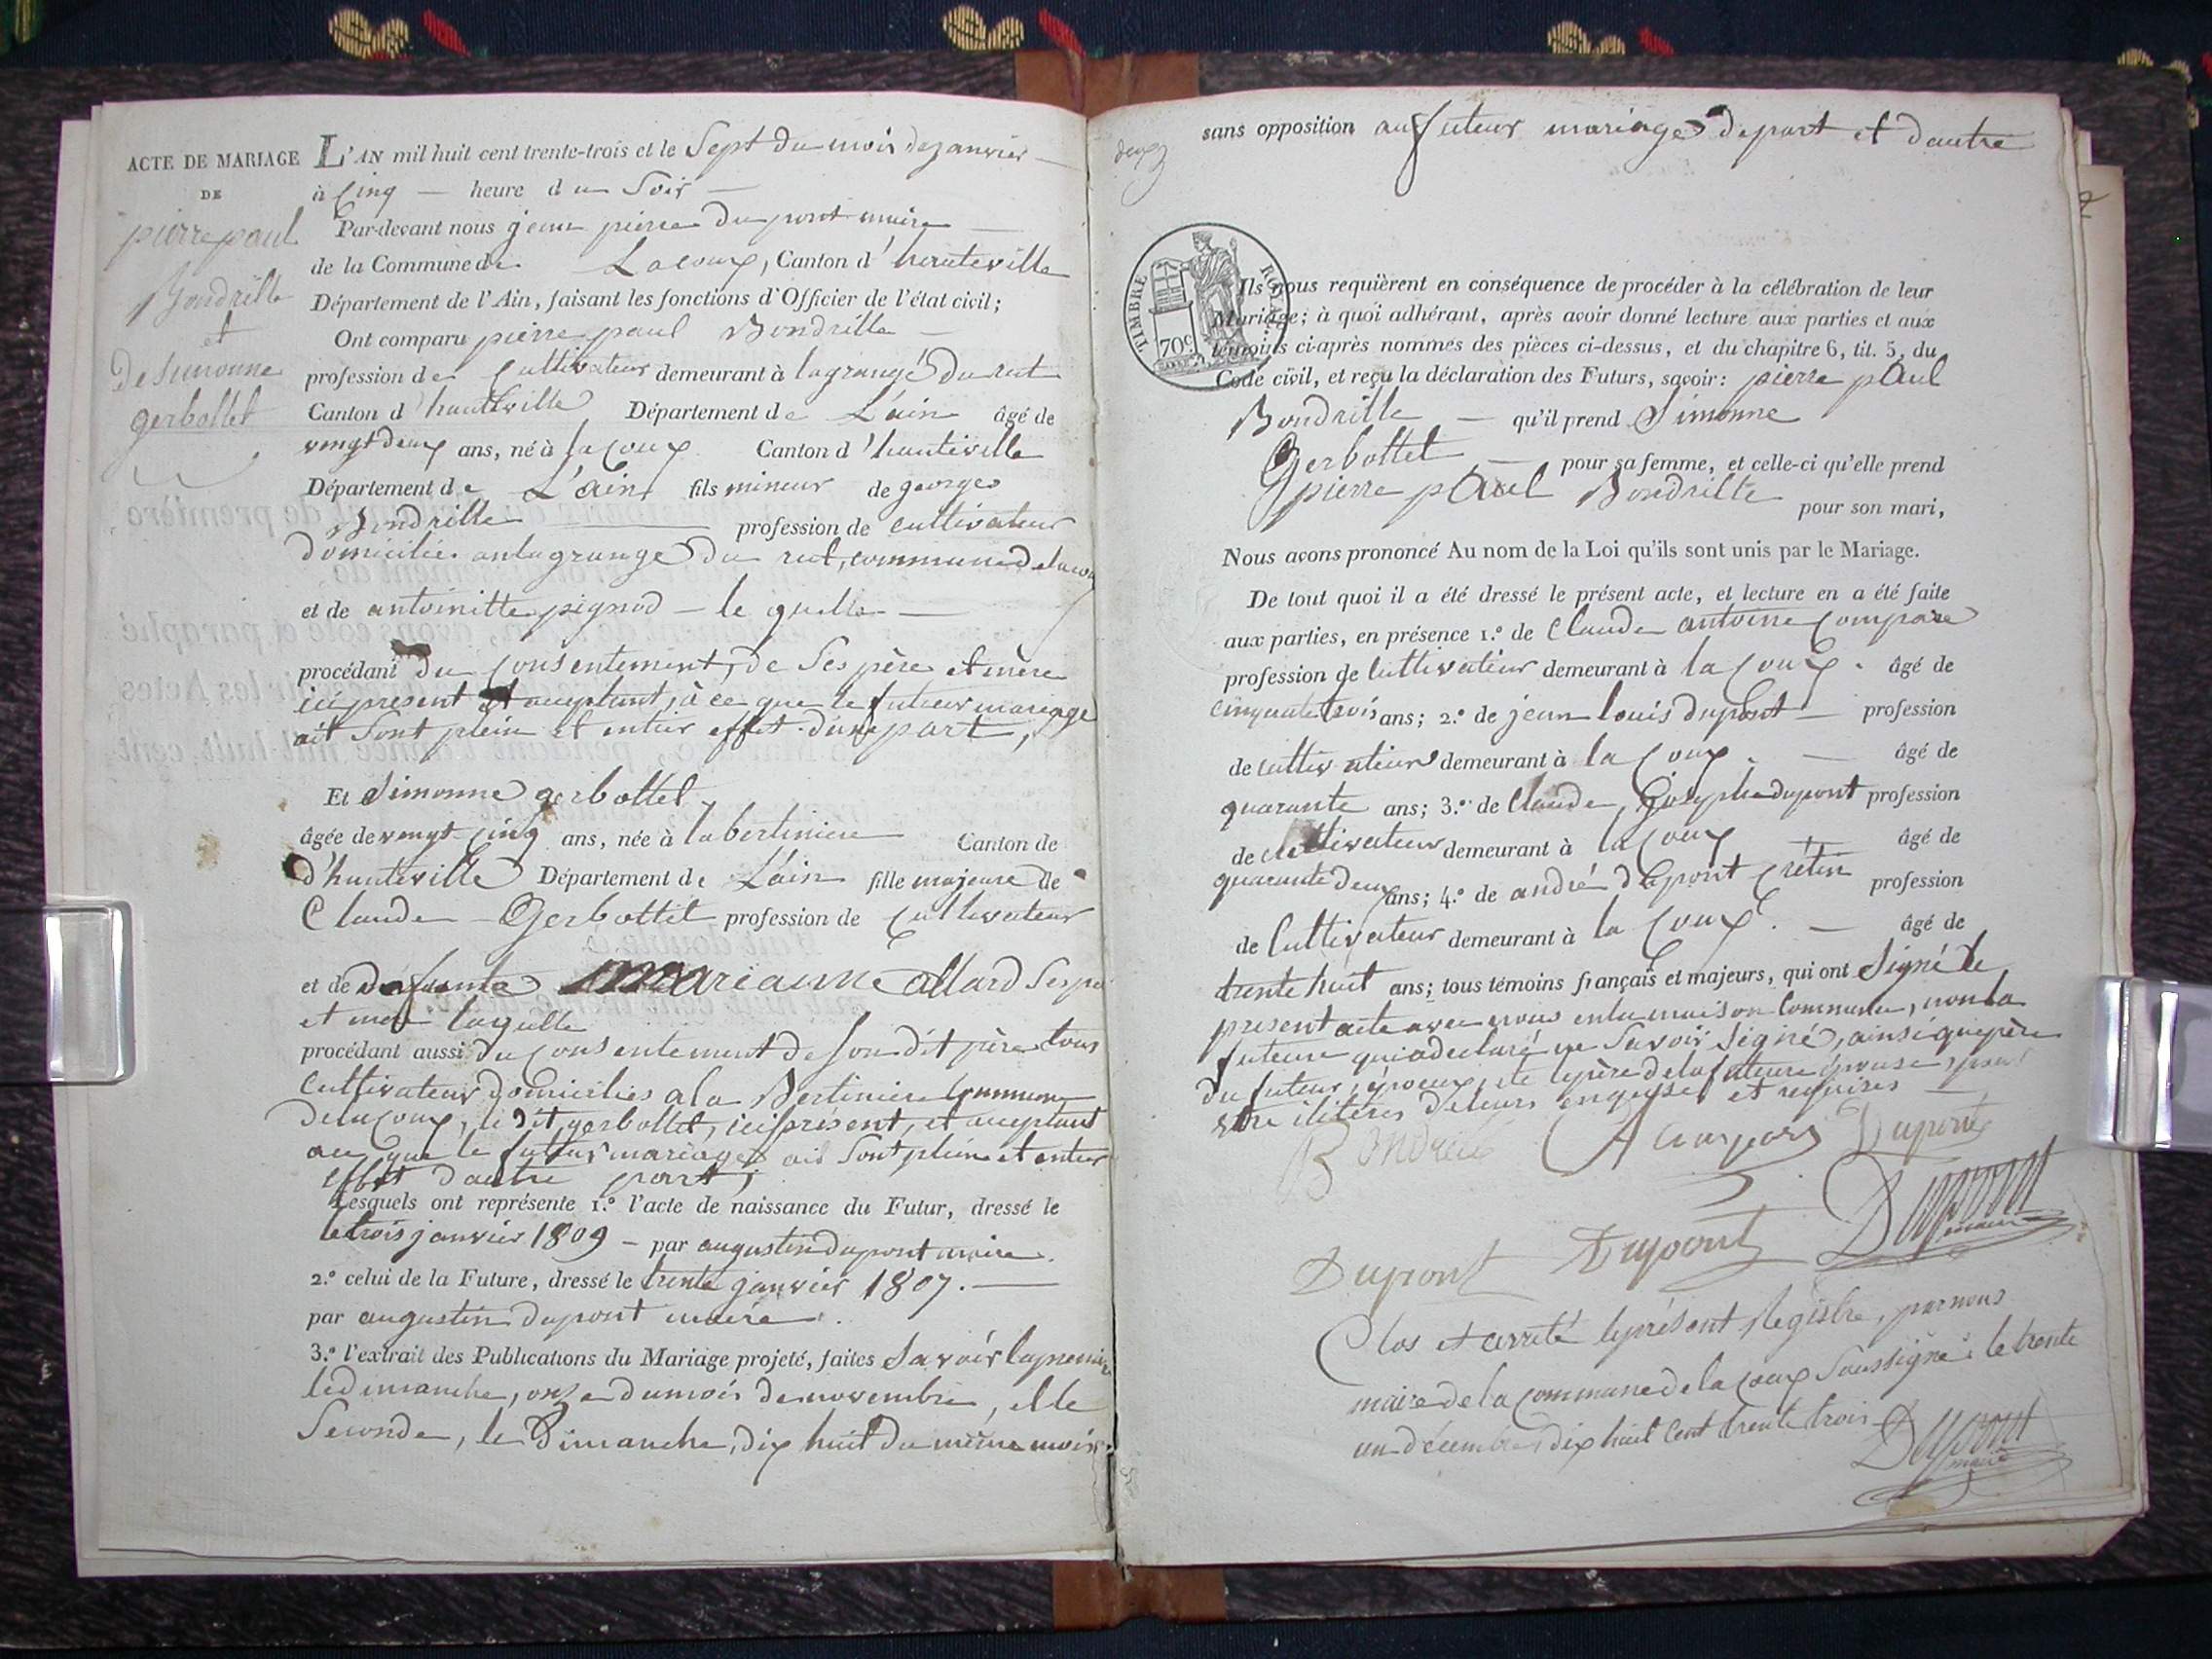 ACTE DE MARIAGE
DE
pierre paul
Bondrille
et
De simonne
gerbollet
L'AN mil huit cent trente-trois et le Sept du mois de janvier
à Cinq heure du Soir
Par-devant nous jean pierre dupont maire
de la Commune de Lacoux, Canton d'hauteville
Département de l'Ain, faisant les fonctions d'Officier de l'état civil;
Ont comparu pierre paul Bondrille
profession de Cultivateur demeurant à lagrange du rut
Canton d'hauteville Département de L'ain âgé de
vengt deux ans, né à la Coux Canton d'hauteville
Département de L'ain fils mineur de georges
Bondrille profession de cultivateur
domicilié a la grange du rut, commune de lacou
et de antoinitte pignod le quelle
procédant du Consentement, de Ses père et mère
ici présent et aceptant, à ce que le futeur mariage
ait Sont plein et entier effet d'une part,
Et Simonne gerbollet
âgée de vengt-cinq ans, née à labertiniere Canton de
d'hauteville Département de L'ain fille majeure de
Claude Gerbottet profession de Cultivateur
et de défunte mariaune allard Ses pe
et mere laquelle
procédant aussi du Consentement de Son dit père tous
Cultivateur domiciliés a la Bertiniere Commune
de la Coux, le dit gerbottet, ici présent, et aceptant
a ce que le futeur mariage ait Sont plein et entier
effet d'autre part;
Lesquels ont représente 1.º l'acte de naissance du Futur, dressé le
le trois janvier 1809 - par augustin dupont maire.
2.º celui de la Future, dressé le trente janvier 1807.
par augustin dupont maire.
3.º l'extrait des Publications du Mariage projeté, faites Savoir la premiere
le dimanche, onze du mois de novembre, et le
Seconde, le Dimanche, dix huit du même mois
deux
sans opposition au futeur mariage depart et dautre
TIMBRE ROYAL
70c
Ils nous requièrent en conséquence de procéder à la célébration de leur
Mariage; à quoi adhérant, après avoir donné lecture aux parties et aux
témoins ci-après nommés des pièces ci-dessus, et du chapitre 6, tit. 5, du
Code civil, et reçu la déclaration des Futurs, savoir: pierre paul
Bondrille qu'il prend Simonne
Gerbottet pour sa femme, et celle-ci qu'elle prend
pierre paul Bondrille pour son mari,
Nous avons prononcé Au nom de la Loi qu'ils sont unis par le Mariage.
De tout quoi il a été dressé le présent acte, et lecture en a été faite
aux parties, en présence 1.º de Claude antoine Compare
profession de Cultivateur demeurant à la Coux. âgé de
cinquate trois ans; 2.º de jean louis dupont profession
de cultivateur demeurant à la Coux. âgé de
quarante ans; 3.º de Claude, Joseph dupont profession
de cultivateur demeurant à la Coux âgé de
quarante deux ans; 4.º de andré dupont Crétin profession
de Cultivateur demeurant à la Coux. âgé de
trente huit ans; tous témoins français et majeurs, qui ont Signé le
present acte avec nous en la maison Commune, non la
futeure qui a declaré ne Savoir Signé, ainsi que père
du futeur, époux, et le père de la futeure épouse, pour
etre ilitéres de leurs enquise et requises
Bondrille Dupont
Dupont
maire
Dupont Dupont
Clos et arreté le présent Registre, par nous
maire de la Commune de la Coux Soussigné le trente
un décembre dix huit Cent trente trois
Dupont
maire